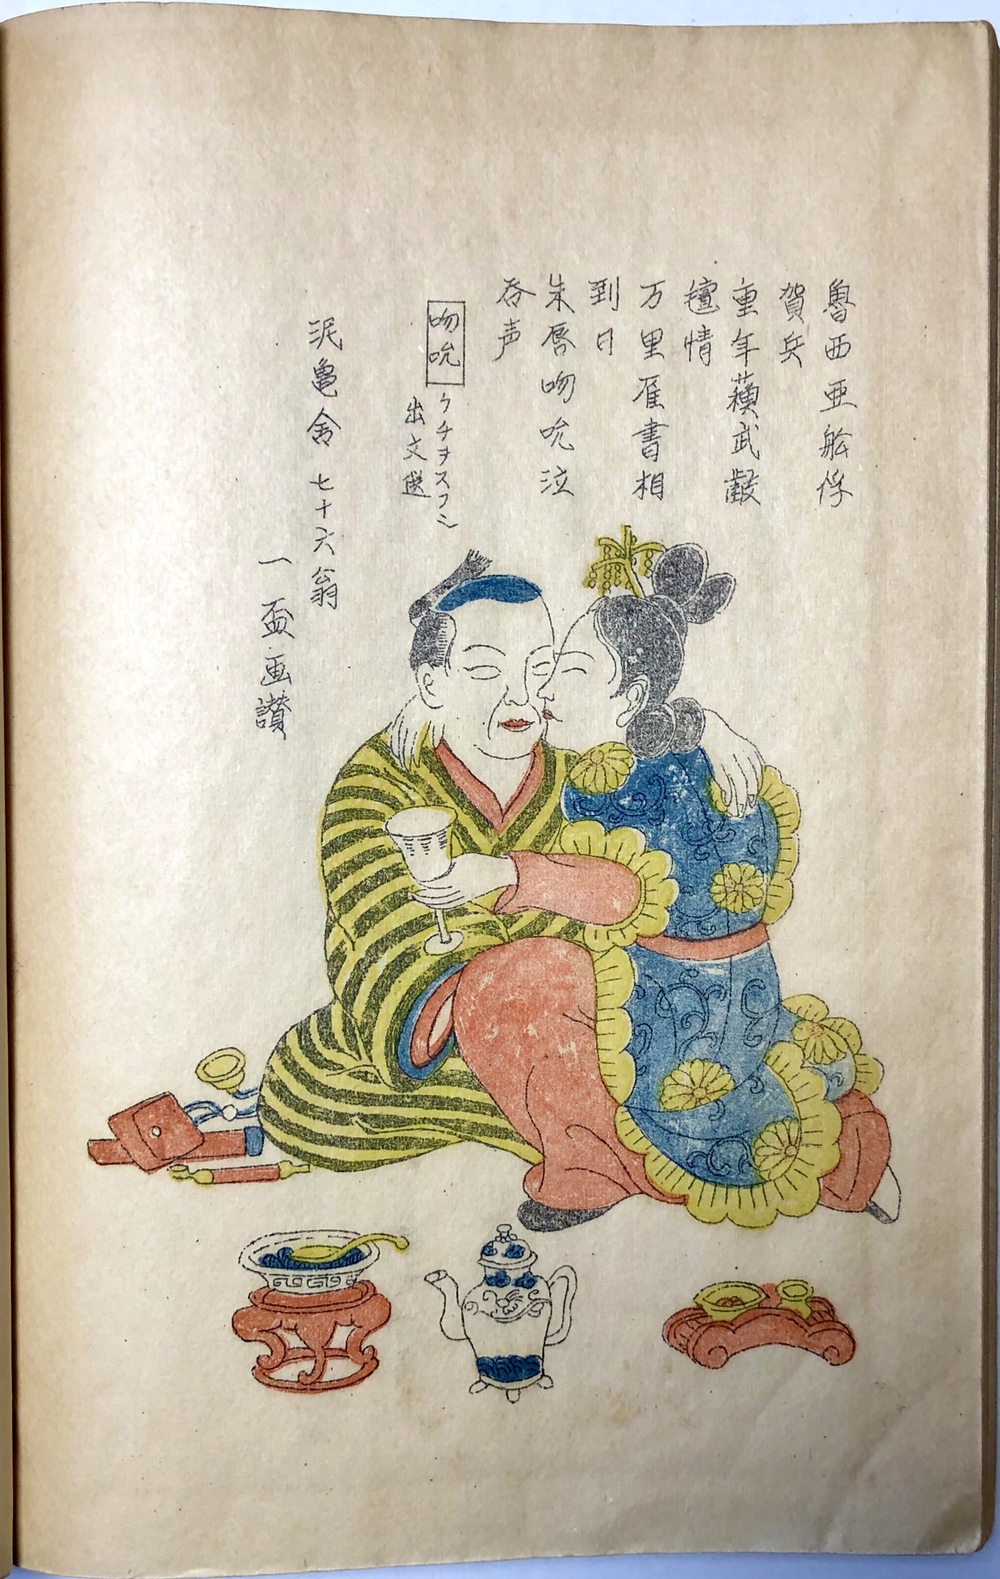 魯西亜舩俘
賀兵
重年蘓武齧
氊情
万里雁書相
到日
朱唇吻吮泣
呑声
吻吮
クチヲスフシ
出文選
泥亀舎 七十六翁
一盃画讃